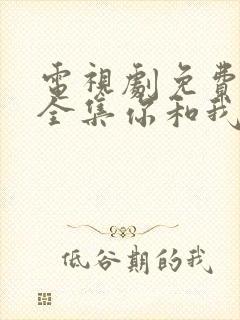 電視劇免費
全集你和我
低谷期的我